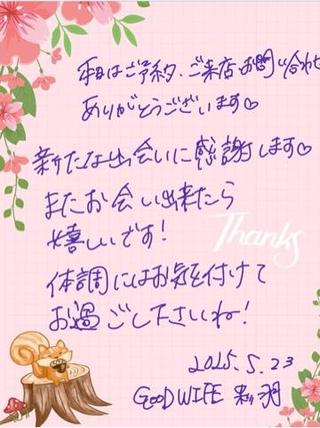 本日はご予約、ご来店お問い合わせ
ありがとうございます♡
新たな出会いに感謝します♡
またお会い出来たら
嬉しいです!
Thanks
体調にはお気を付けて
お過ごし下さいね!
2025.5.23
GOOD WIFE